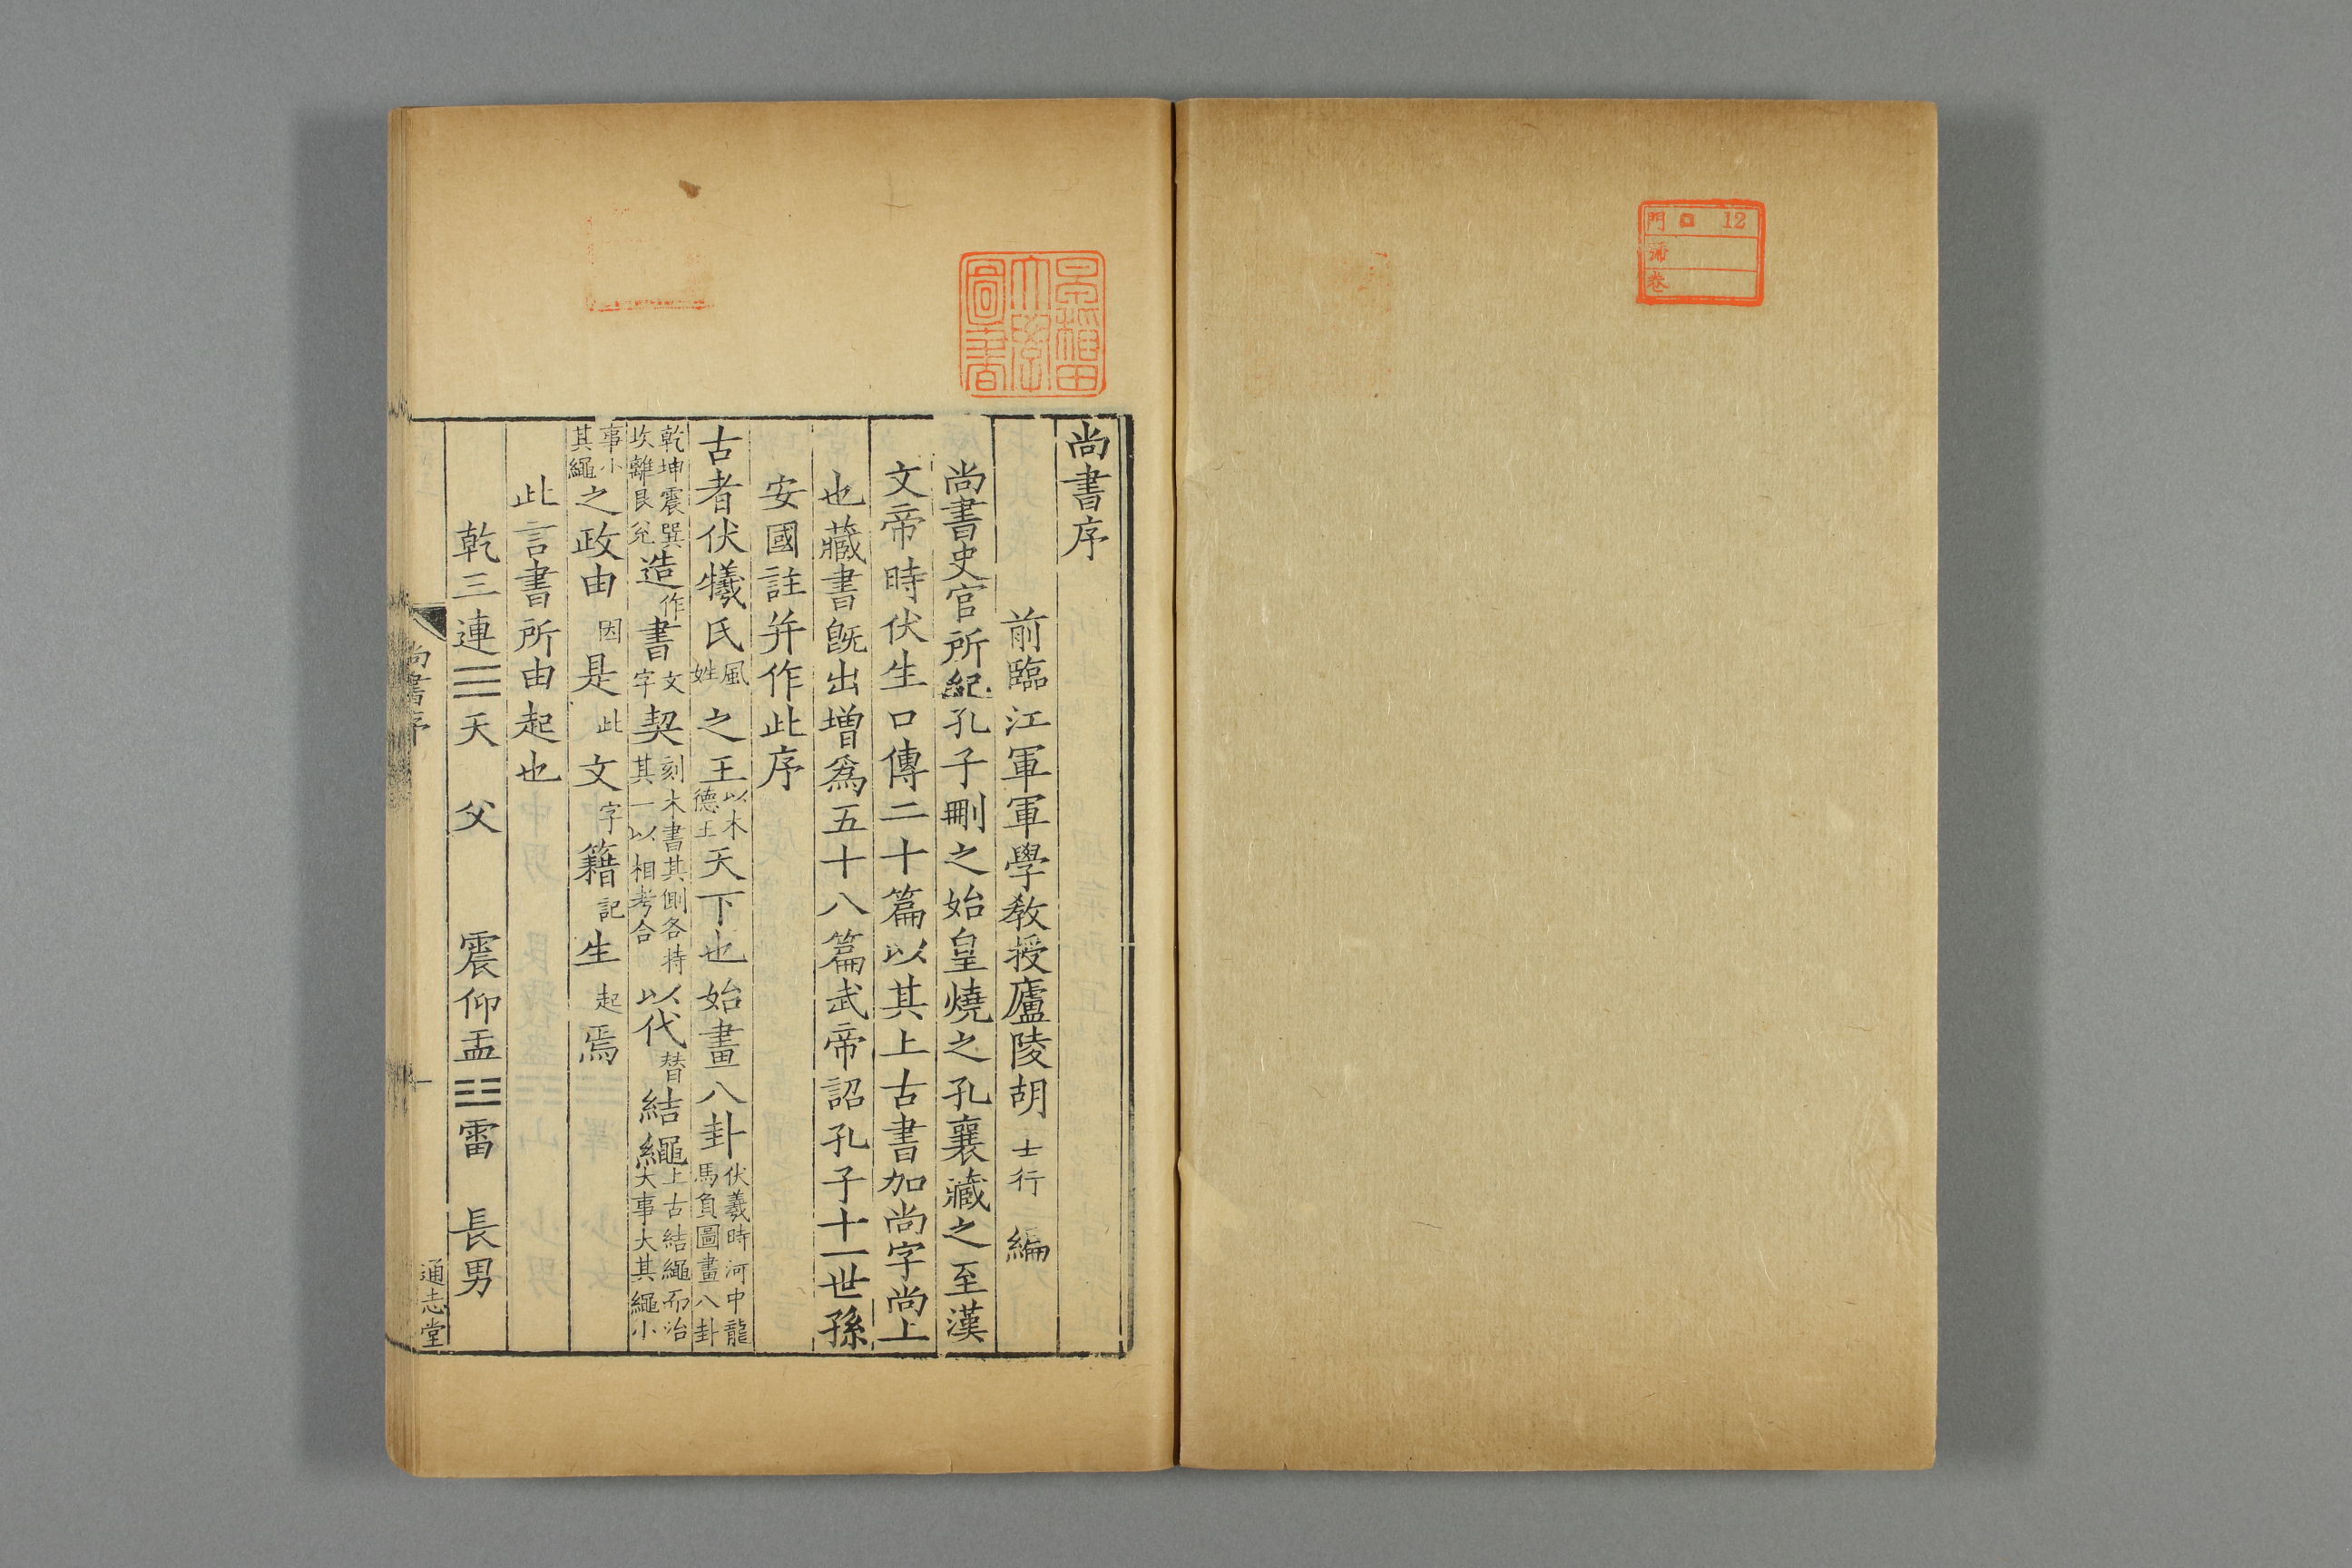 門 ロ 12
號
卷
早稲田
大學
圖書
尚書序
前臨江軍軍學教授廬陵胡 士行 編
尚書史官所紀孔子刪之始皇燒之孔襄藏之至漢
文帝時伏生口傳二十篇以其上古書加尚字尚上
也藏書旣出增爲五十八篇武帝詔孔子十一世孫
安國註并作此序
古者伏犧氏風姓之王以木德王天下也始畫八卦伏羲時河中龍馬負圖畫八卦
乾坤震巽坎離艮兌造作書文字契刻木書其側各持其一以相考合以代替結繩上古結繩而治大事大其繩小
事小其繩之政由因是此文字籍記生起焉
此言書所由起也
乾三連☰天 父 震仰盂☳雷 長男
尚書序
一
通志堂